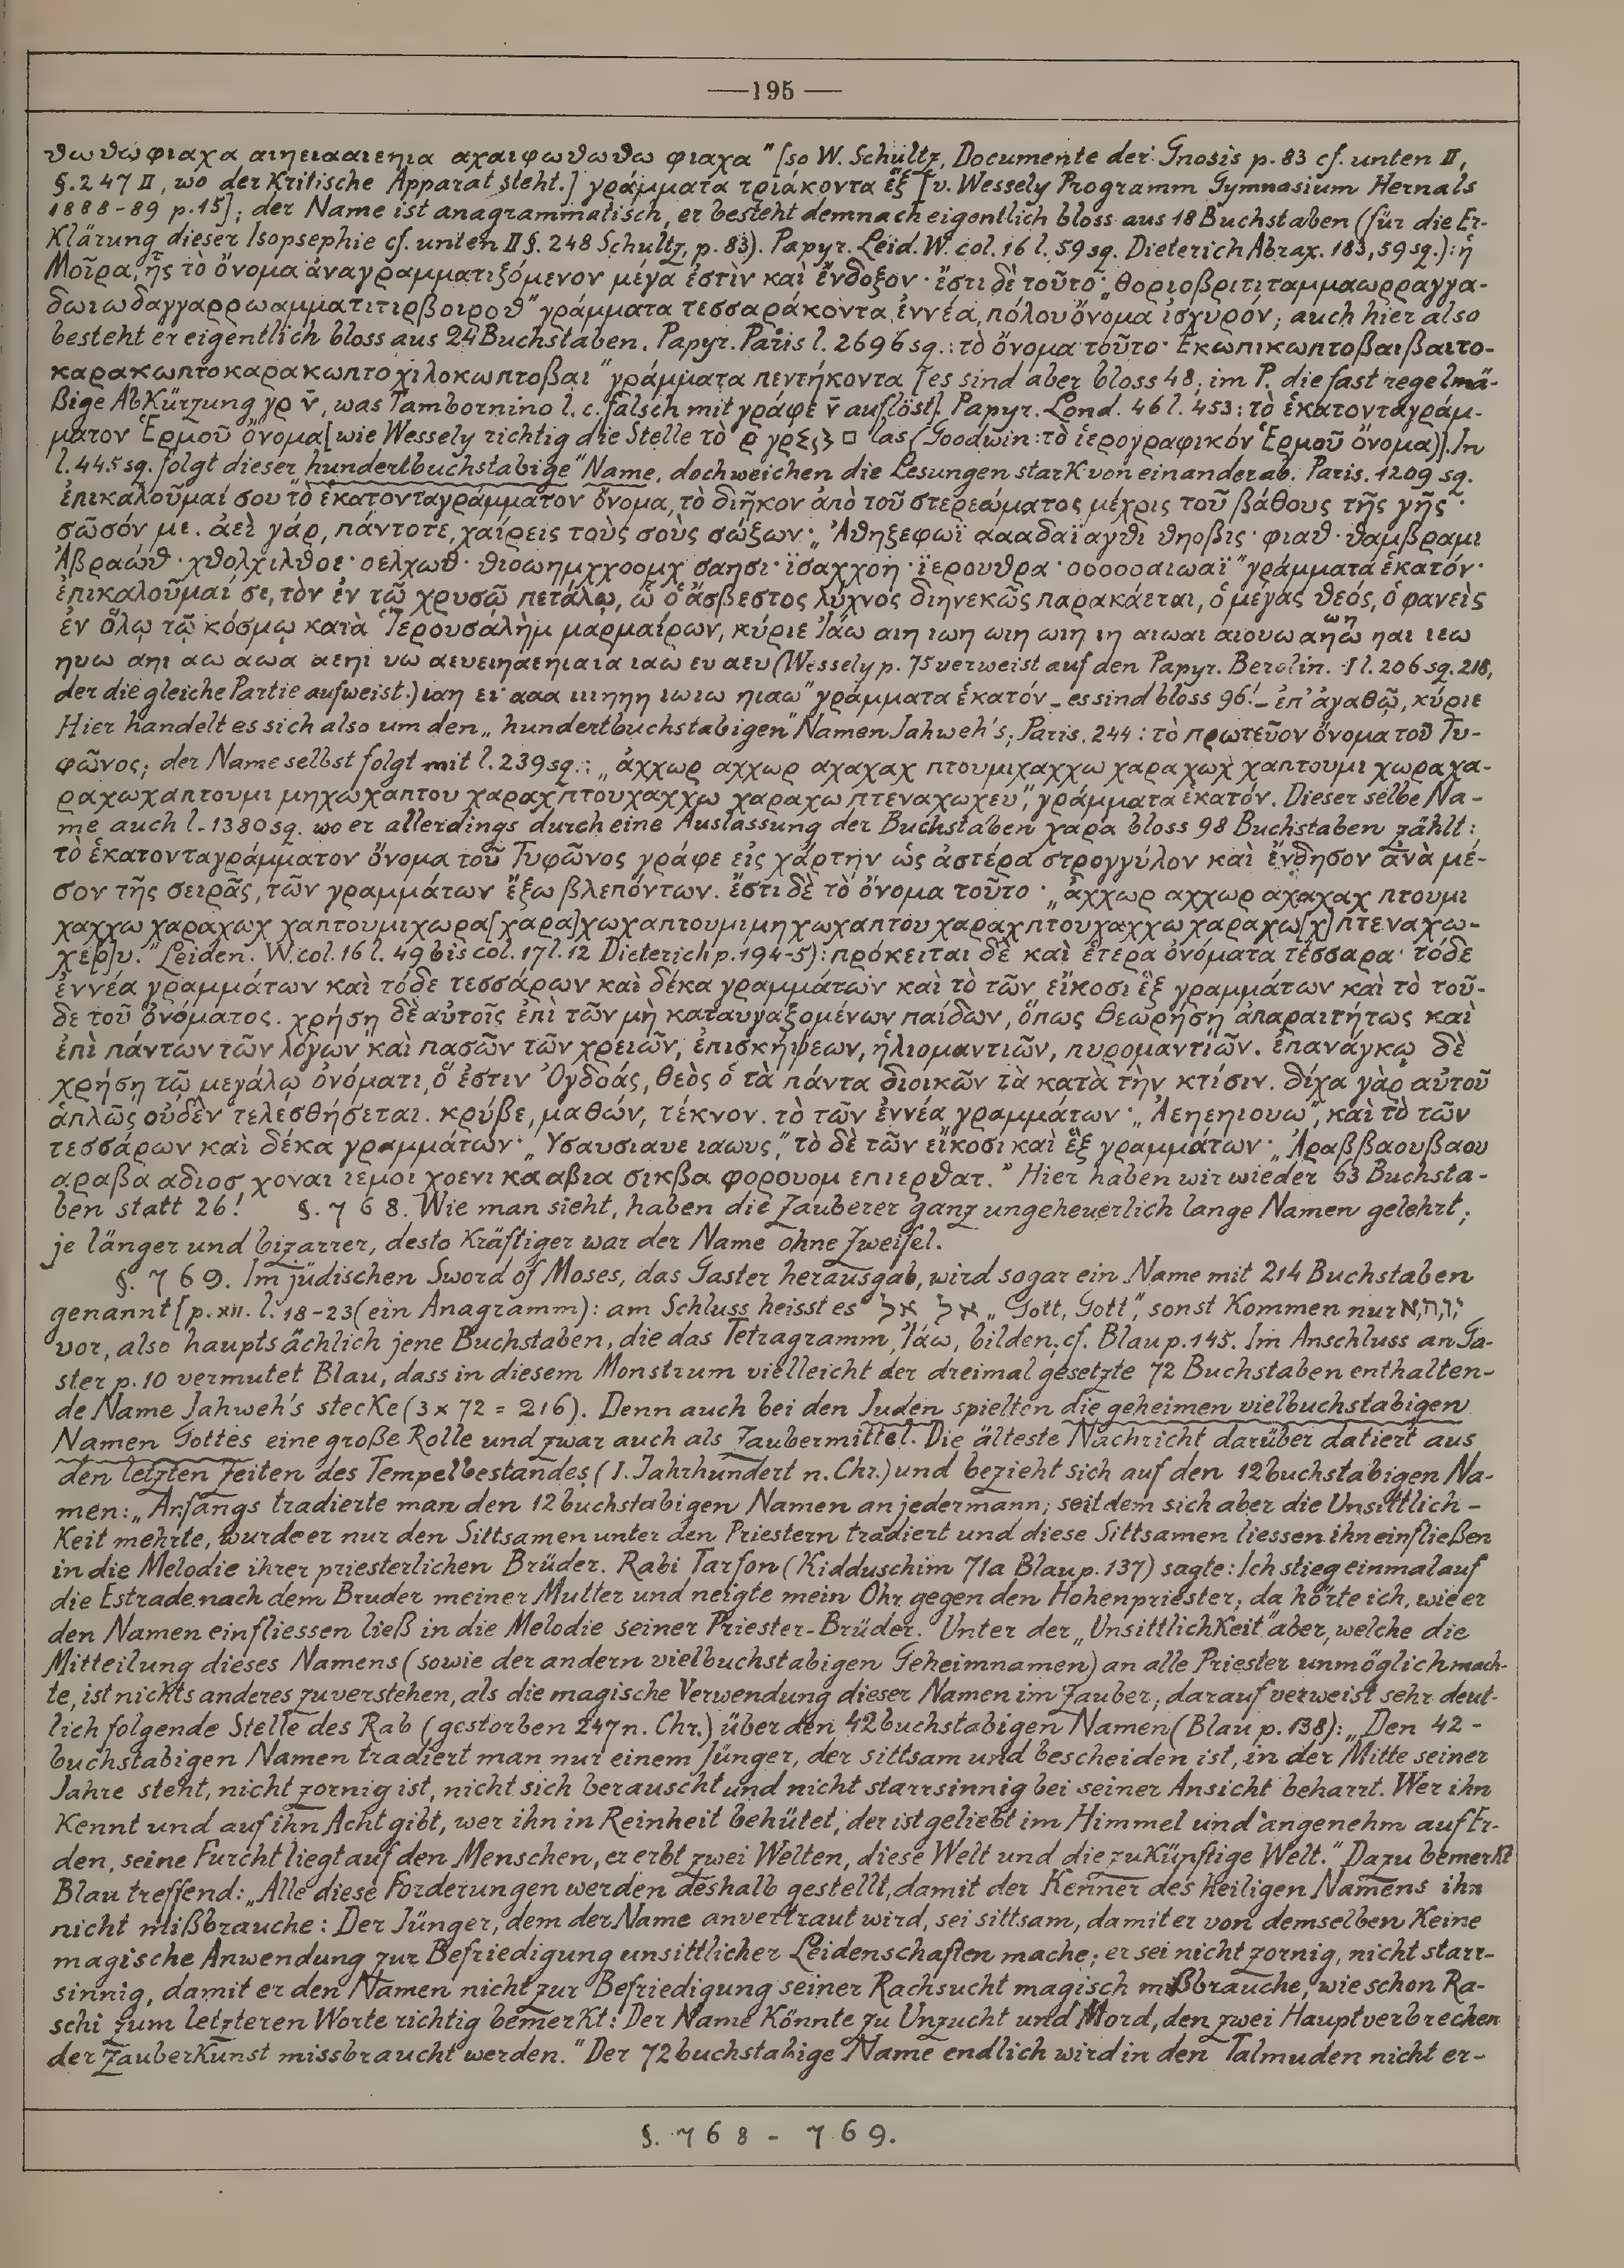 —195—
θωθωφιαχα αιηειααιεηια αχαιφωθωθω φιαχα" [so W. Schultz, Documente der Gnosis p. 83 cf. unten II,
§. 247 II, wo der Kritische Apparat steht.] γράμματα τριάκοντα ἕξ [v. Wessely Programm Gymnasium Hernals
1888-89 p. 15]; der Name ist anagrammatisch, er besteht demnach eigentlich bloss aus 18 Buchstaben (für die Er-
Klärung dieser Isopsephie cf. unten II §. 248 Schultz, p. 83). Papyr. Leid. W. col. 16 l. 59 sg. Dieterich Abrax. 183, 59 sg.): ἡ
Μοῖρα, ἧς τὸ ὄνομα ἀναγραμματιζόμενον μέγα ἐστὶν καὶ ἔνδοξον · ἔστι δὲ τοῦτο „θοριοβριτιταμμαωρραγγα-
δωιωδαγγαρρωαμματιτιρβοιροθ" γράμματα τεσσαράκοντα ἐννέα, πόλου ὄνομα ἰσχυρόν; auch hier also
besteht er eigentlich bloss aus 24 Buchstaben. Papyr. Paris l. 2696 sg.: τὸ ὄνομα τοῦτο· Εκωπικωπτοβαιβαιτο-
καρακωπτοκαρακωπτοχιλοκωπτοβαι" γράμματα πεντήκοντα [es sind aber bloss 48; im P. die fast regelmä-
ßige AbKürzung γρ ν̄, was Tambornino l. c. falsch mit γράφε ν̄ auflöst]. Papyr. Lond. 46 l. 453: τὸ ἑκατονταγράμ-
ματον Ἑρμοῦ ὄνομα [wie Wessely richtig die Stelle τὸ ρ las (Goodwin: τὸ ἱερογραφικόν Ἑρμοῦ ὄνομα)]. In
l. 445 sg. folgt dieser hundertbuchstabige" Name, doch weichen die Lesungen starK von einander ab. Paris. 1209 sg.
ἐπικαλοῦμαί σου τὸ ἑκατονταγράμματον ὄνομα, τὸ διῆκον ἀπὸ τοῦ στερεώματος μέχρις τοῦ βάθους τῆς γῆς ·
σῶσόν με. ἀεὶ γάρ, πάντοτε, χαίρεις τοὺς σοὺς σώζων · „Ἀθηξεφωϊ αααδαϊαγθι θηοβις · φιαθ · θαμβραμι
Ἀβραώθ · χθολχιλθοε · οελχωθ · θιοωημχχοομχ σαησι · ϊσαχχοη · ϊερουθρα · οοοοοαιωαϊ" γράμματα ἑκατόν ·
ἐπικαλοῦμαί σε, τὸν ἐν τῷ χρυσῷ πετάλῳ, ᾧ ὁ ἄσβεστος λύχνος διηνεκῶς παρακάεται, ὁ μέγας θεός, ὁ φανεὶς
ἐν ὅλῳ τῷ κόσμῳ κατὰ Ἰερουσαλὴμ μαρμαίρων, κύριε Ἰάω αιη ιωη ωιη ωιη ιη αιωαι αιουω αηώ ηαι ιεω
ηυω αηι αω αωα αεηι υω αευειηαεηιαια ιαω ευ αευ (Wessely p. 75 verweist auf den Papyr. Berolin. I l. 206 sg. 218,
der die gleiche Partie aufweist.) ιαη ει ααα ιιιηηη ιωιω ηιαω" γράμματα ἑκατόν – es sind bloss 96! – ἐπ' ἀγαθῷ, κύριε
Hier handelt es sich also um den „hundertbuchstabigen" Namen Jahweh's; Paris. 244: τὸ πρωτεῦον ὄνομα τοῦ Τυ-
φῶνος; der Name selbst folgt mit l. 239 sg.: „ἀχχωρ αχχωρ αχαχαχ πτουμιχαχχω χαραχωχ χαπτουμι χωραχα-
ραχωχαπτουμι μηχωχαπτου χαραχπτουχαχχω χαραχω πτεναχωχευ", γράμματα ἑκατόν. Dieser selbe Na-
me auch l. 1380 sg. wo er allerdings durch eine Auslassung der Buchstaben χαρα bloss 98 Buchstaben zählt:
τὸ ἑκατονταγράμματον ὄνομα τοῦ Τυφῶνος γράφε εἰς χάρτην ὡς ἀστέρα στρογγύλον καὶ ἔνδησον ἀνὰ μέ-
σον τῆς σειρᾶς, τῶν γραμμάτων ἔξω βλεπόντων. ἔστι δὲ τὸ ὄνομα τοῦτο · „ἀχχωρ αχχωρ αχαχαχ πτουμι
χαχχω χαραχωχ χαπτουμιχωρα[χαρα]χωχαπτουμιμηχωχαπτου χαραχπτουχαχχω χαραχω[χ]πτεναχω-
χε[ρ]υ." Leiden. W. col. 16 l. 49 bis col. 17 l. 12 Dieterich p. 194-5): πρόκειται δὲ καὶ ἕτερα ὀνόματα τέσσαρα· τόδε
ἐννέα γραμμάτων καὶ τόδε τεσσάρων καὶ δέκα γραμμάτων καὶ τὸ τῶν εἴκοσι ἓξ γραμμάτων καὶ τὸ τοῦ-
δε τοῦ ὀνόματος. χρήσῃ δὲ αὐτοῖς ἐπὶ τῶν μὴ καταυγαζομένων παίδων, ὅπως θεωρήσῃ ἀπαραιτήτως καὶ
ἐπὶ πάντων τῶν λόγων καὶ πασῶν τῶν χρειῶν, ἐπισκήψεων, ἡλιομαντιῶν, πυρομαντιῶν. ἐπανάγκῳ δὲ
χρήσῃ τῷ μεγάλῳ ὀνόματι, ὅ ἐστιν Ὀγδοάς, θεὸς ὁ τὰ πάντα διοικῶν τὰ κατὰ τὴν κτίσιν. δίχα γὰρ αὐτοῦ
ἁπλῶς οὐδὲν τελεσθήσεται. κρύβε, μαθών, τέκνον. τὸ τῶν ἐννέα γραμμάτων · „Ἀεηεηιουω", καὶ τὸ τῶν
τεσσάρων καὶ δέκα γραμμάτων · „Υσαυσιαυε ιαωυς", τὸ δὲ τῶν εἴκοσι καὶ ἓξ γραμμάτων · „Ἀραββαουβαου
αραβα αδιοσ χοναι ιεμοι χοενι κααβια σικβα φορουομ επιερθατ." Hier haben wir wieder 63 Buchsta-
ben statt 26! §. 768. Wie man sieht, haben die Zauberer ganz ungeheuerlich lange Namen gelehrt;
je länger und bizarrer, desto Kräftiger war der Name ohne Zweifel.
§. 769. Im jüdischen Sword of Moses, das Gaster herausgab, wird sogar ein Name mit 214 Buchstaben
genannt [p. XII. l. 18-23 (ein Anagramm): am Schluss heisst es אל אל „Gott, Gott", sonst Kommen nur י,ו,ה,א
vor, also hauptsächlich jene Buchstaben, die das Tetragramm, Ἰάω, bilden; cf. Blau p. 145. Im Anschluss an Ga-
ster p. 10 vermutet Blau, dass in diesem Monstrum vielleicht der dreimal gesetzte 72 Buchstaben enthalten-
de Name Jahweh's stecKe (3 x 72 = 216). Denn auch bei den Juden spielten die geheimen vielbuchstabigen
Namen Gottes eine große Rolle und zwar auch als Zaubermittel. Die älteste Nachricht darüber datiert aus
den letzten Zeiten des Tempelbestandes (1. Jahrhundert n. Chr.) und bezieht sich auf den 12 buchstabigen Na-
men: „Anfangs tradierte man den 12 buchstabigen Namen an jedermann; seitdem sich aber die Unsittlich-
Keit mehrte, wurde er nur den Sittsamen unter den Priestern tradiert und diese Sittsamen liessen ihn einfließen
in die Melodie ihrer priesterlichen Brüder. Rabi Tarfon (Kidduschim 71a Blau p. 137) sagte: Ich stieg einmal auf
die Estrade nach dem Bruder meiner Mutter und neigte mein Ohr gegen den Hohenpriester; da hörte ich, wie er
den Namen einfliessen ließ in die Melodie seiner Priester-Brüder." Unter der „UnsittlichKeit" aber, welche die
Mitteilung dieses Namens (sowie der andern vielbuchstabigen Geheimnamen) an alle Priester unmöglich mach-
te, ist nichts anderes zu verstehen, als die magische Verwendung dieser Namen im Zauber; darauf verweist sehr deut-
lich folgende Stelle des Rab (gestorben 247 n. Chr.) über den 42 buchstabigen Namen (Blau p. 138): „Den 42-
buchstabigen Namen tradiert man nur einem Jünger, der sittsam und bescheiden ist, in der Mitte seiner
Jahre steht, nicht zornig ist, nicht sich berauscht und nicht starrsinnig bei seiner Ansicht beharrt. Wer ihn
Kennt und auf ihn Acht gibt, wer ihn in Reinheit behütet, der ist geliebt im Himmel und angenehm auf Er-
den, seine Furcht liegt auf den Menschen, er erbt zwei Welten, diese Welt und die zuKünftige Welt." Dazu bemerKt
Blau treffend: „Alle diese Forderungen werden deshalb gestellt, damit der Kenner des heiligen Namens ihn
nicht mißbrauche: Der Jünger, dem der Name anvertraut wird, sei sittsam, damit er von demselben Keine
magische Anwendung zur Befriedigung unsittlicher Leidenschaften mache; er sei nicht zornig, nicht starr-
sinnig, damit er den Namen nicht zur Befriedigung seiner Rachsucht magisch mißbrauche, wie schon Ra-
schi zum letzteren Worte richtig bemerKt: Der Name Könnte zu Unzucht und Mord, den zwei Hauptverbrechen
der ZauberKunst missbraucht werden." Der 72 buchstabige Name endlich wird in den Talmuden nicht er-
§. 768 - 769.